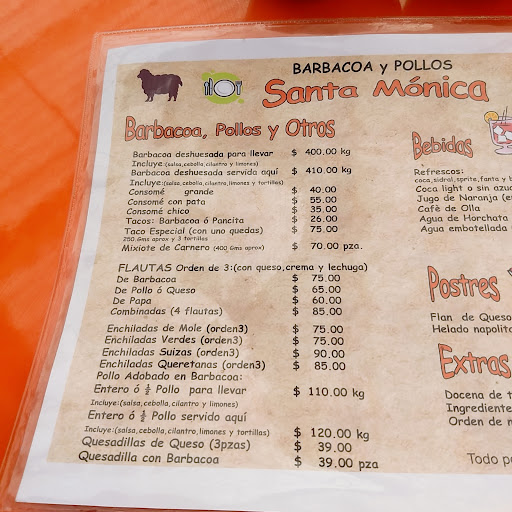 BARBACOA y POLLOS
Santa Mónica
Barbacoa, Pollos y Otros
Barbacoa deshuesada para llevar $ 400.00 kg
Incluye:(salsa,cebolla,cilantro y limones)
Barbacoa deshuesada servida aquí $ 410.00 kg
Incluye:(salsa,cebolla,cilantro,limones y tortillas)
Consomé grande $ 40.00
Consomé con pata $ 55.00
Consomé chico $ 35.00
Tacos: Barbacoa ó Pancita $ 26.00
Taco Especial (con uno quedas) $ 75.00
250 Gms aprox y 3 tortillas
Mixiote de Carnero (400 Gms aprox) $ 70.00 pza.
FLAUTAS Orden de 3:(con queso,crema y lechuga)
De Barbacoa $ 75.00
De Pollo ó Queso $ 65.00
De Papa $ 60.00
Combinadas (4 flautas) $ 85.00
Enchiladas de Mole (orden3) $ 75.00
Enchiladas Verdes (orden3) $ 75.00
Enchiladas Suizas (orden3) $ 90.00
Enchiladas Queretanas (orden3) $ 85.00
Pollo Adobado en Barbacoa:
Entero ó ½ Pollo para llevar $ 110.00 kg
Incluye:(salsa,cebolla,cilantro y limones)
Entero ó ½ Pollo servido aquí
Incluye:(salsa,cebolla,cilantro,limones y tortillas) $ 120.00 kg
Quesadillas de Queso (3pzas) $ 39.00
Quesadilla con Barbacoa $ 39.00 pza
Bebidas
Refrescos:
coca,sidral,sprite,fanta y
Coca light o sin azuc
Jugo de Naranja
Cafè de Olla
Agua de Horchata
Agua embotellada
Postres
Flan de Queso
Helado napolit
Extras
Docena de t
Ingrediente
Orden de
Todo